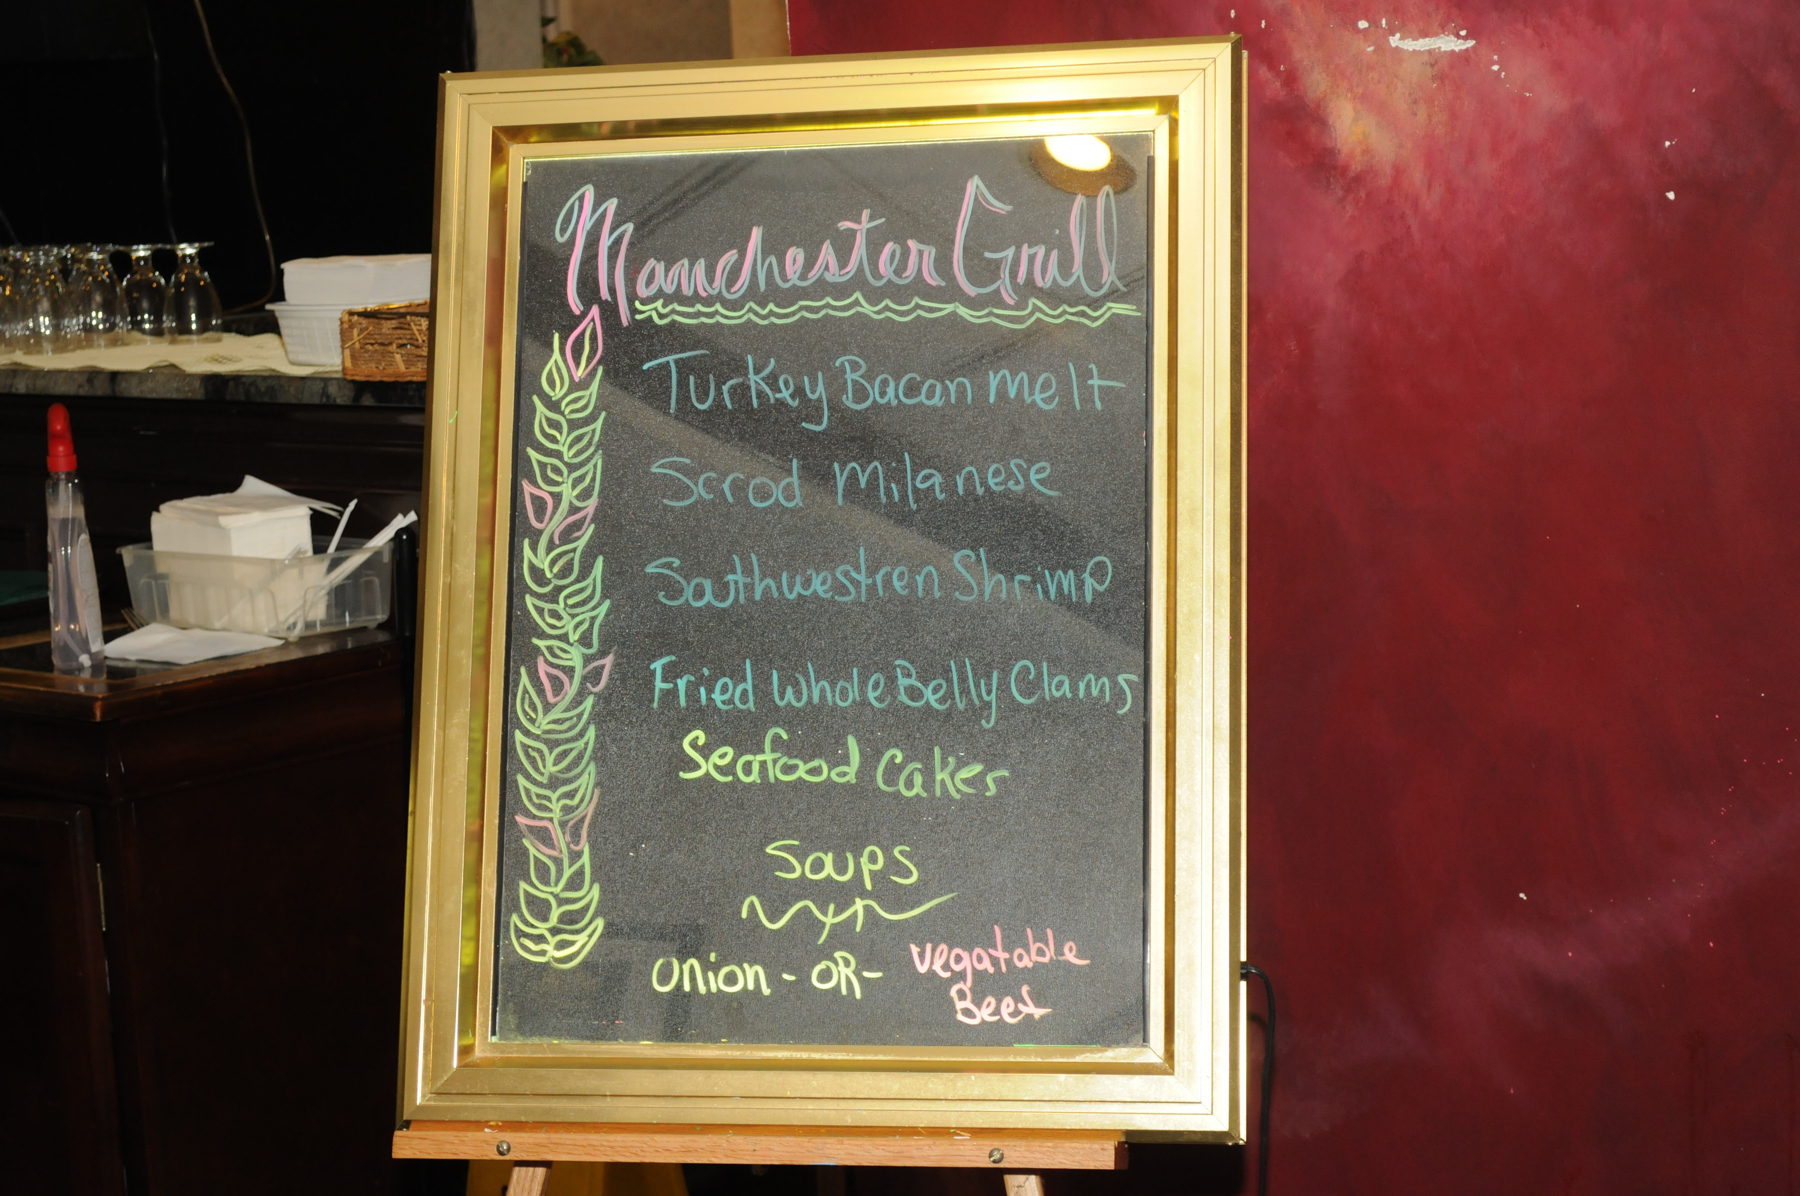 Manchester Grill
Turkey Bacan melt
Scrod Milanese
Southwestren Shrimp
Fried Whole Belly Clams
Seafood Cakes
Soups
Onion - OR - Vegatable
Beef